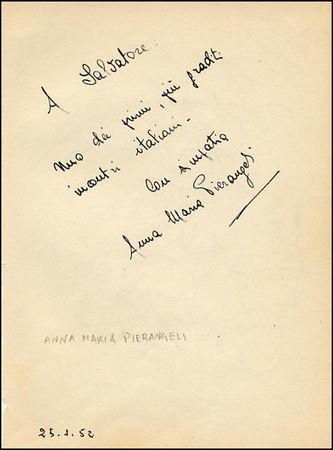 A Salvatore.
Uno dei primi, più graditi
incontri italiani.
Con simpatia
Anna Maria Pierangeli
ANNA MARIA PIERANGELI
25.1.52